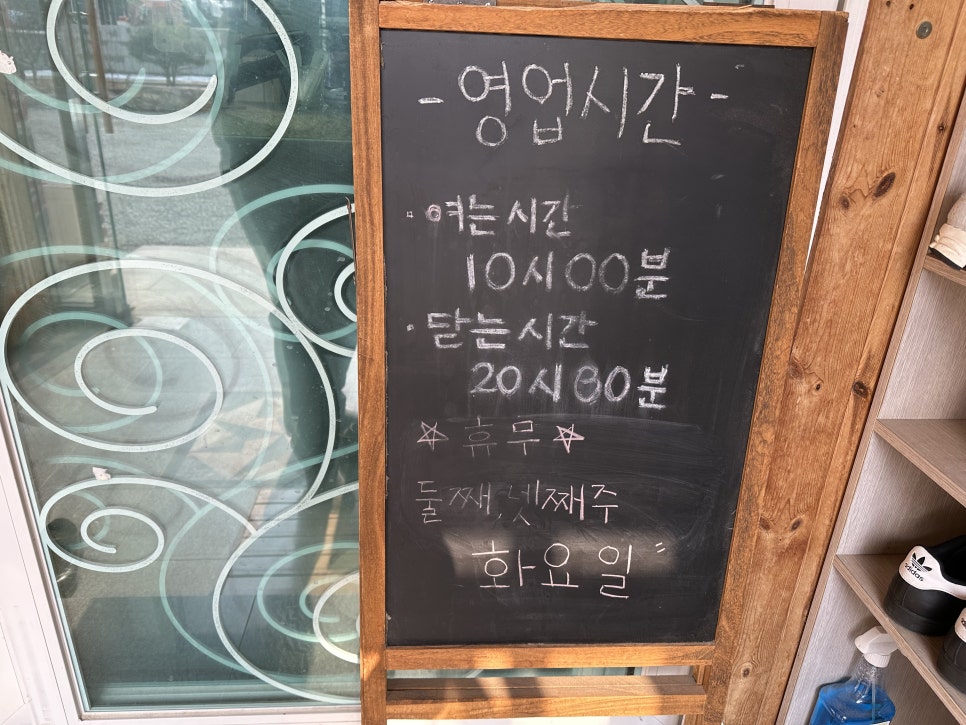 - 영업시간 -
· 여는 시간
10시 00분
· 닫는 시간
20시 80분
☆ 휴무 ☆
둘째, 넷째주
화요일"
adidas